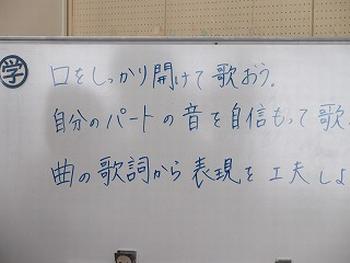 学 口をしっかり開けて歌おう。
自分のパートの音を自信もって歌
曲の歌詞から表現を工夫しよ